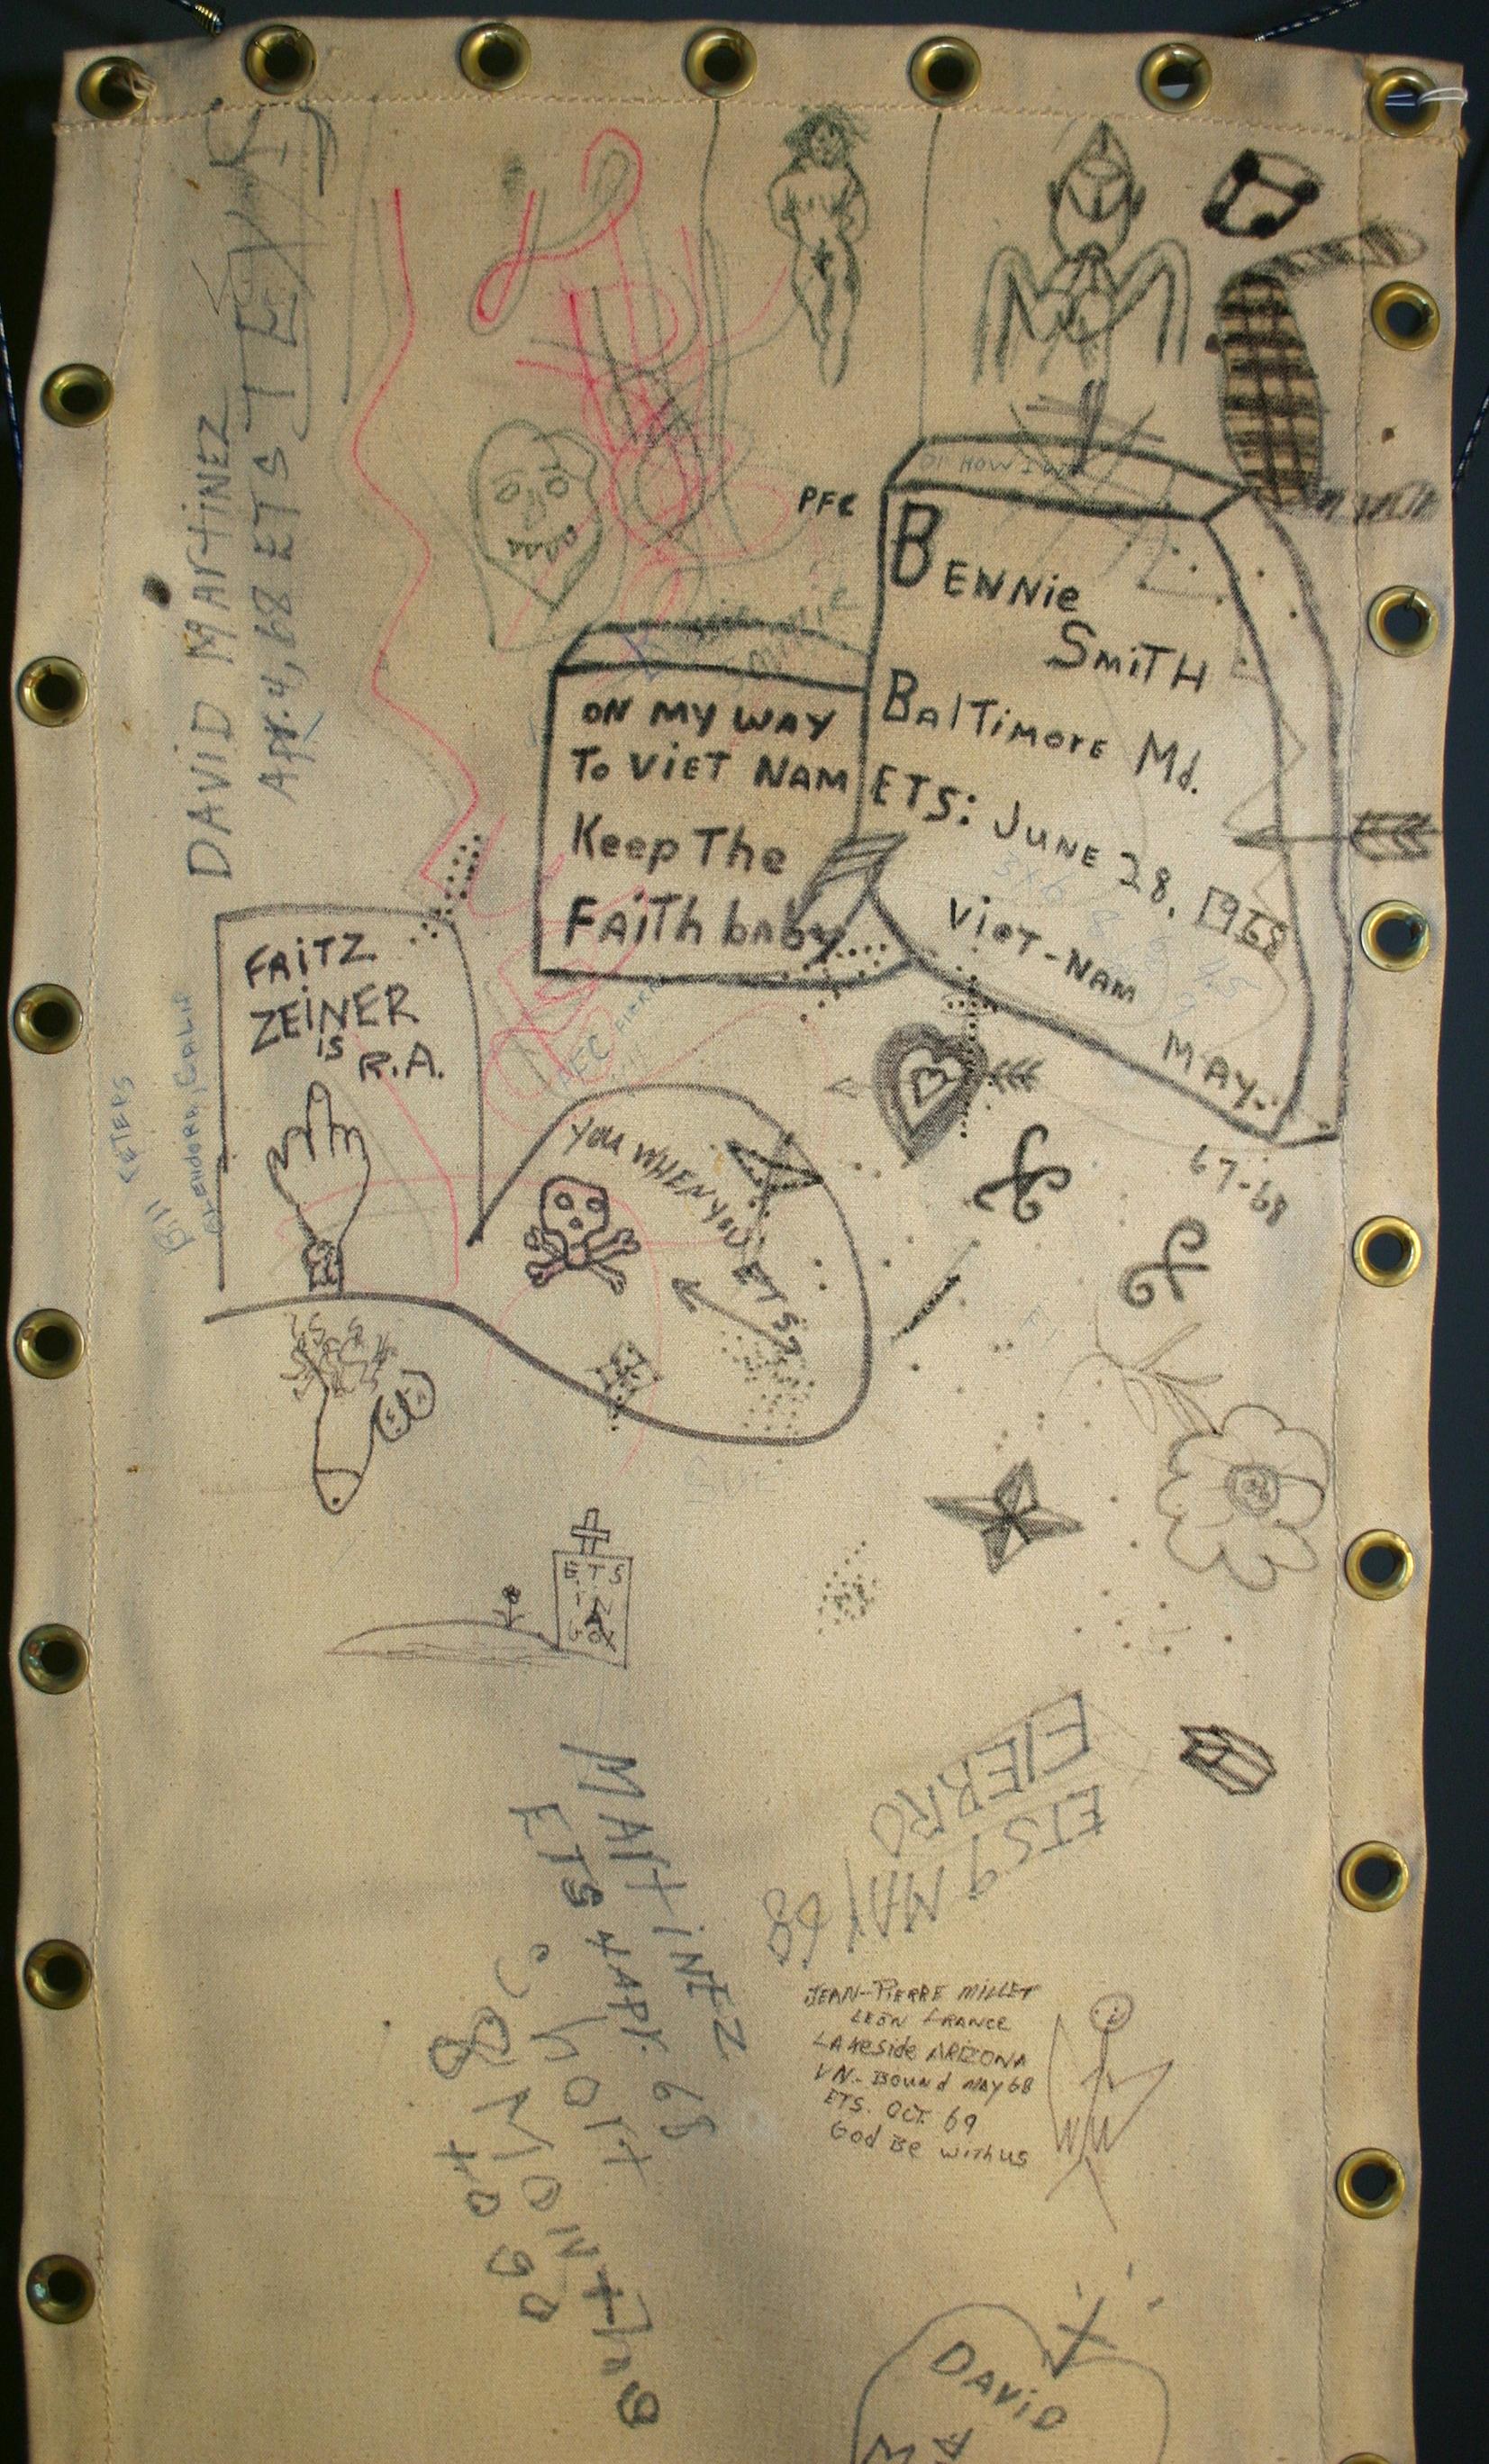 DAVID MARTINEZ
Apr. 4, 68 ETS
PFC
BENNiE
SMiTH
BAlTimorE Md.
ETS: JUNE 28, 1968
ViET-NAM
MAY.
67-68
ON MY WAY
To ViET NAM
Keep The
FAiTh bAby
FRiTZ
ZEiNER
is
R.A.
Bill PETERS
GLENDORA, CALIF
YOU WHEN YOU ETS?
SUE
ETS
iN
A
BOX
MArtiNEZ
ETS 4 APr. 68
Short
8 MONths
to go
FIERRO
ETS 9 MAY 68
JEAN-PIERRE MILLET
LEON FRANCE
LAKeside ARIZONA
VN.- Bound MAY 68
ETS. OCT. 69
God Be with us
DAViD